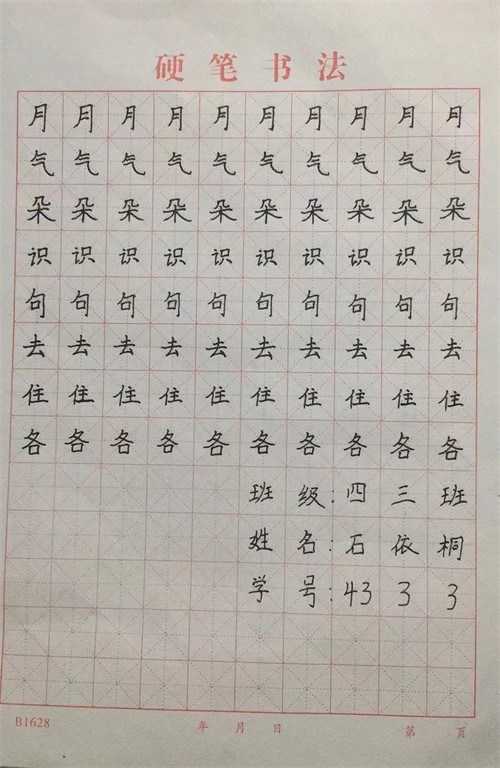 硬笔书法
月月月月月月月月月月
气气气气气气气气气气
朵朵朵朵朵朵朵朵朵朵
识识识识识识识识识识
句句句句句句句句句句
去去去去去去去去去去
住住住住住住住住住住
各各各各各各各各各各
班级:四三班
姓名:石依桐
学号:4333
B1628 年 月 日 第 页